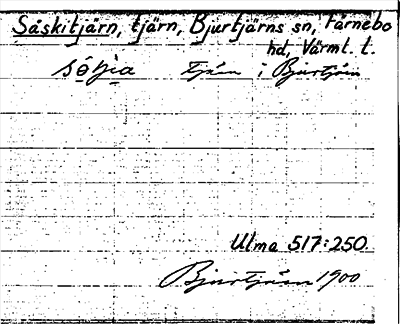 Såskitjärn, tjärn, Bjurtjärns sn, Färnebo
hd, Värml. l.
tjärn i Bjurtjärn
Ulma 517:250.
Bjurtjärn 1900